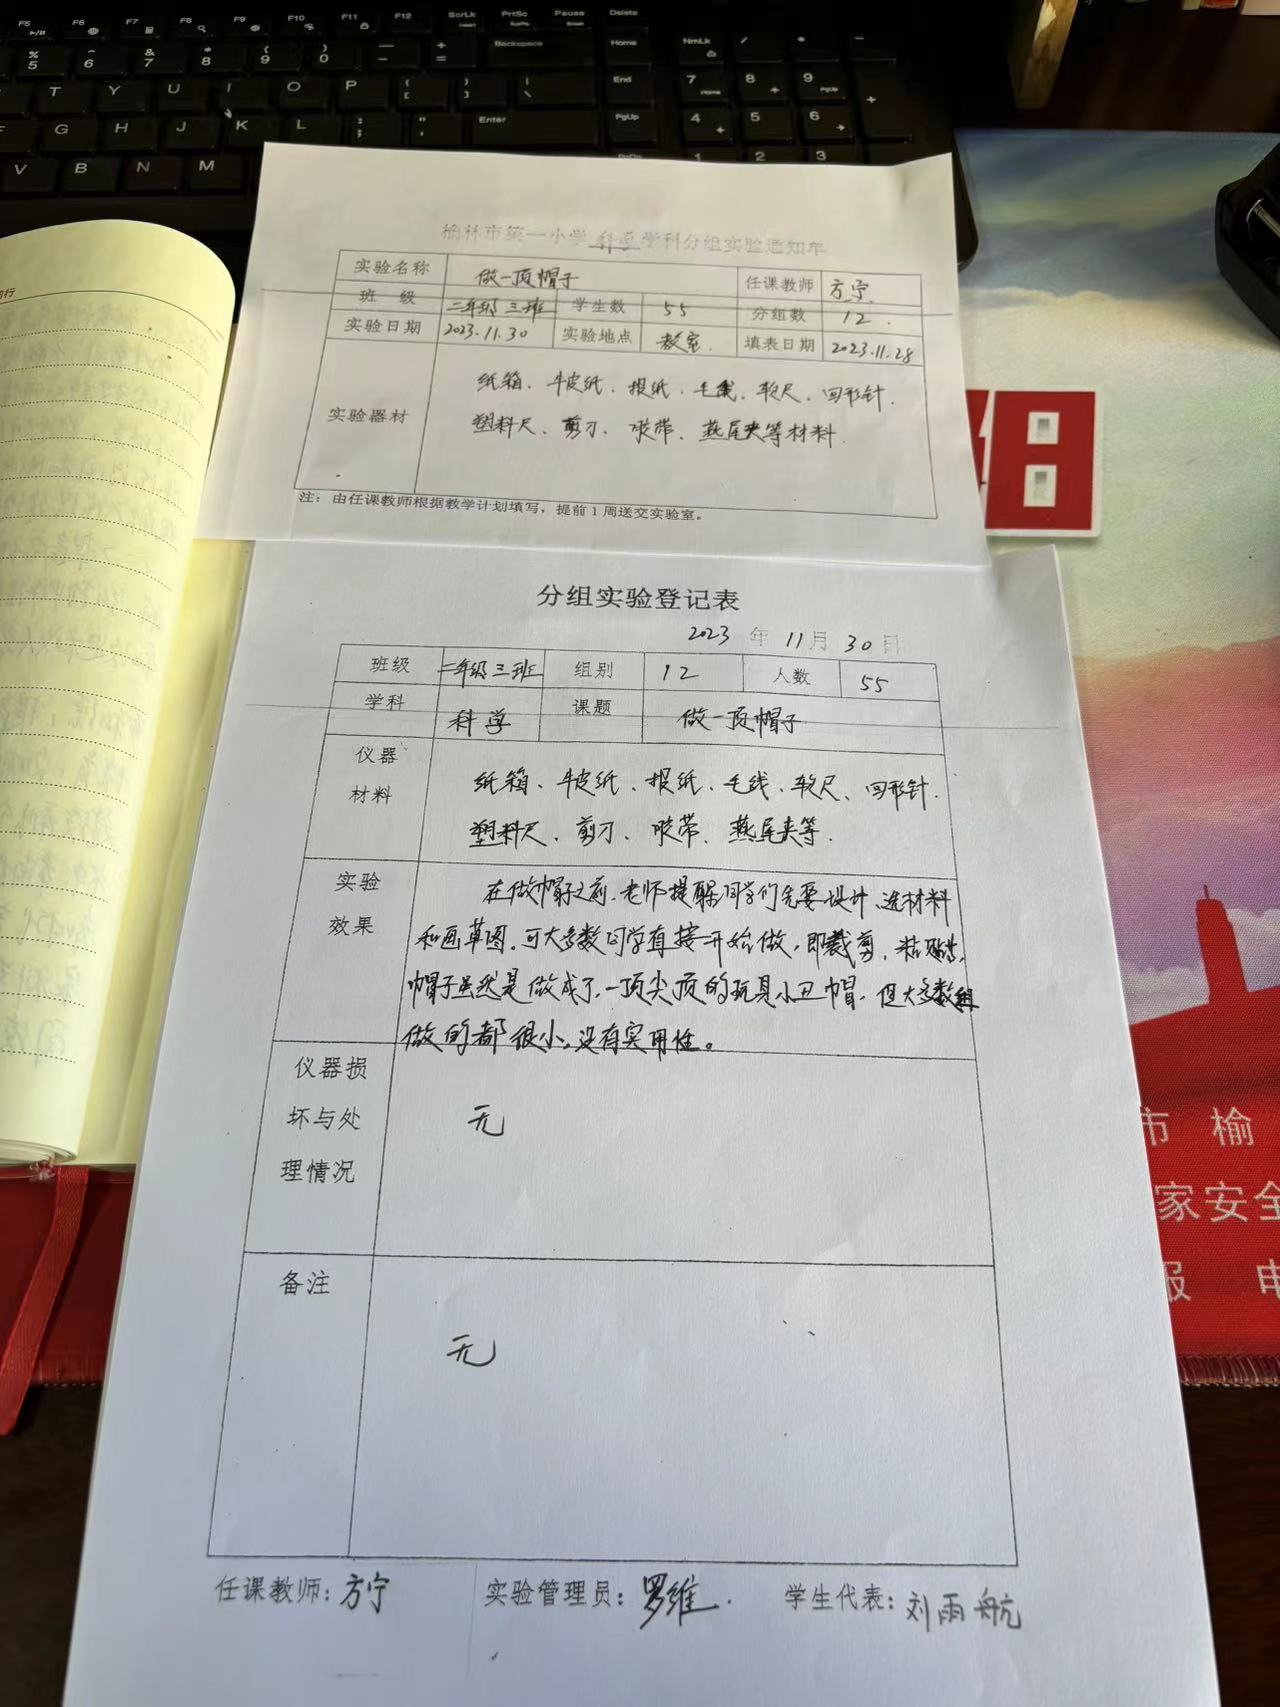 榆林市第一小学 科学 学科分组实验通知单
实验名称 做一顶帽子 任课教师 方宁
班 级 二年级三班 学生数 55 分组数 12
实验日期 2023.11.30 实验地点 教室 填表日期 2023.11.28
实验器材
纸箱、牛皮纸、报纸、毛线、软尺、回形针、
塑料尺、剪刀、胶带、燕尾夹等材料
注：由任课教师根据教学计划填写，提前1周送交实验室。
分组实验登记表
2023 年 11月 30日
班级 二年级三班 组别 12 人数 55
学科 科学 课题 做一顶帽子
仪器
材料
纸箱、牛皮纸、报纸、毛线、软尺、回形针、
塑料尺、剪刀、胶带、燕尾夹等.
实验
效果
在做帽子之前，老师提醒同学们先要设计、选材料
和画草图，可大多数同学直接开始做，即裁剪、粘贴，
帽子虽然是做成了，一顶尖顶的玩具小丑帽，但大多数组
做的都很小。没有实用性。
仪器损
坏与处
理情况
无
备注
无
任课教师：方宁 实验管理员：罗维 学生代表：刘雨航
市 榆
家安全
报 电
F5 F6 F7 F8 F9 F10 F11 F12 ScrLk PrtSc Pause Delete
5 6 7 8 9 0 Backspace Home NmLk
T Y U I O P End 7 8 9
G H J K L Enter PgUp 4 5 6
V B N M 1 2 3